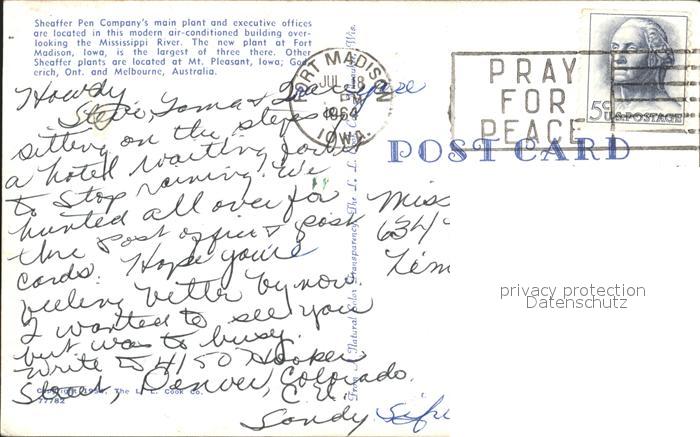 Sheaffer Pen Company's main plant and executive offices
are located in this modern air-conditioned building over-
looking the Mississippi River. The new plant at Fort
Madison, Iowa, is the largest of three there. Other
Sheaffer plants are located at Mt. Pleasant, Iowa; God-
erich, Ont. and Melbourne, Australia.
FORT MADISON
JUL 18
PM
1964
IOWA
PRAY
FOR
PEACE
5¢ U.S. POSTAGE
POST CARD
Howdy
Steve, Tom &
sitting on the steps of
a hotel waiting for it
to stop raining. We
hunted all over for
the post office & post
cards. Hope you're
feeling better by now.
I wanted to see you
but was to busy.
Write to 4150 Hooker
Street, Denver, Colorado.
Sandy
Miss
634
Lem
privacy protection
Datenschutz
The L. L. Cook Co.
77782